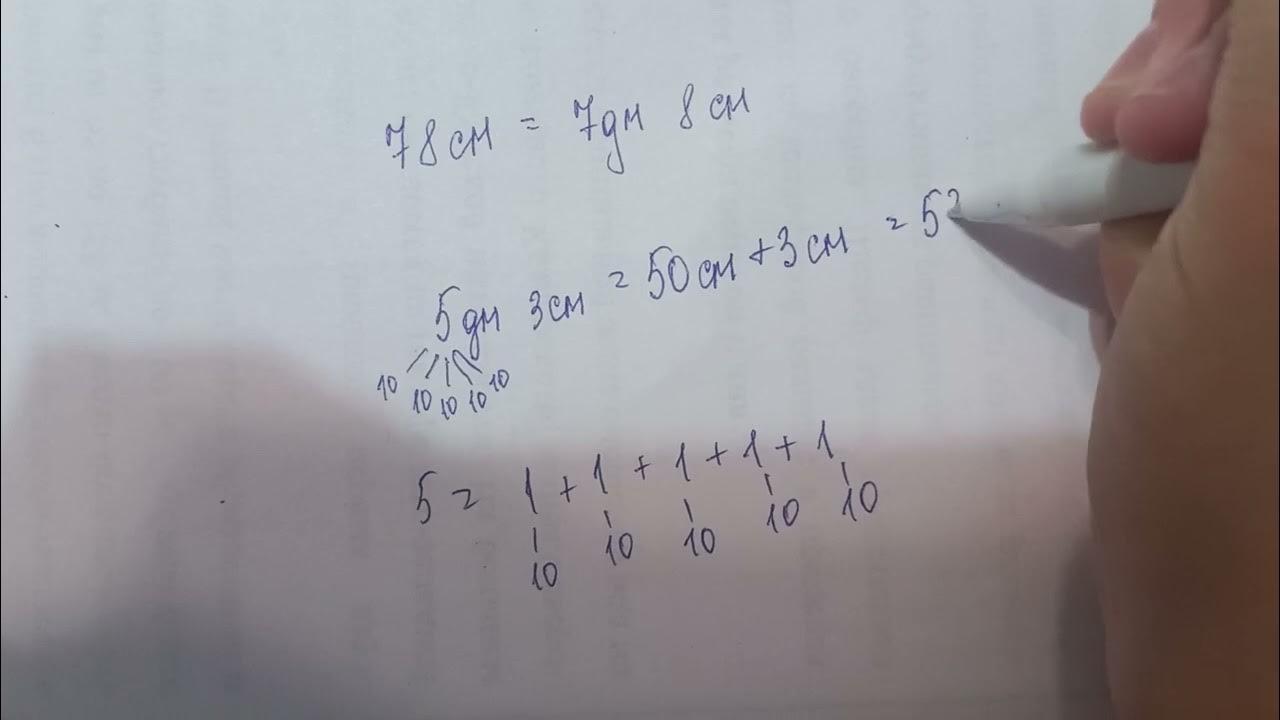 78см = 7дм 8см
5дм 3см = 50см + 3см = 53
10 10 10 10 10
5 = 1 + 1 + 1 + 1 + 1
10 10 10 10 10